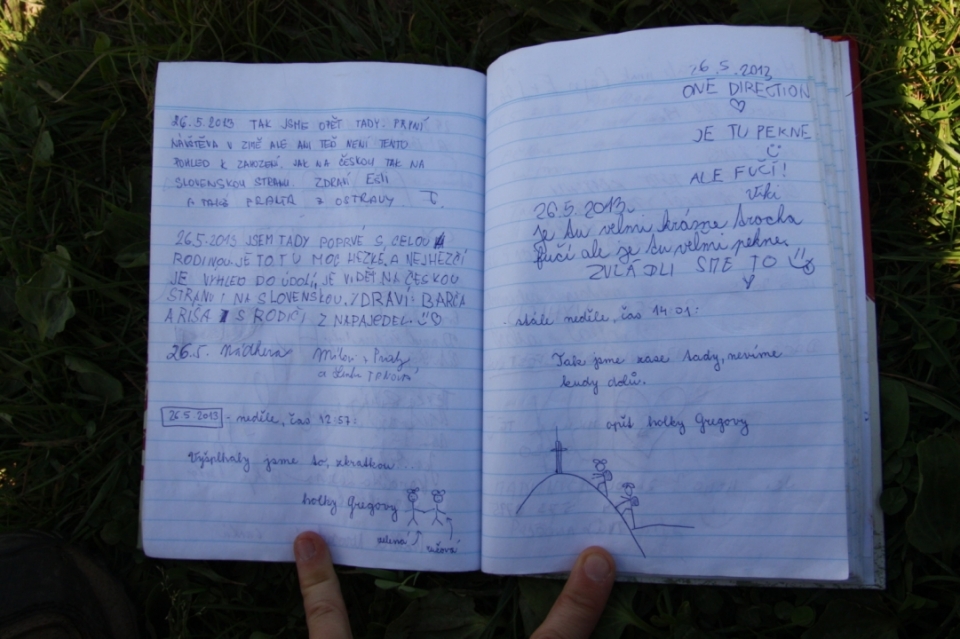 26.5.2013 TAK JSME OPĚT TADY. PRVNÍ
NÁVŠTĚVA V ZIMĚ ALE ANI TEĎ NENÍ TENTO
POHLED K ZAHOZENÍ. JAK NA ČESKOU TAK NA
SLOVENSKOU STRANU. ZDRAVÍ
Z OSTRAVY
26.5.2013 JSEM TADY POPRVÉ S CELOU
RODINOU. JE TO TU MOC HEZKÉ A NEJHEZČÍ
JE VÝHLED DO ÚDOLÍ, JE VIDĚT NA ČESKOU
STRANU I NA SLOVENSKOU. ZDRAVÍ: BARČA
A RIŠA S RODIČI Z NAPAJEDEL
26.5. Nádhera Milan z Prahy
a
26.5.2013 - neděle, čas 12:57:
Vyšplhaly jsme to, zkratkou
holky Gregovy
zelená růžová
26.5.2013
ONE DIRECTION
JE TU PEKNE
ALE FUČÍ!
Viki
26.5.2013.
Je tu velmi krásne trocha
fučí ale je tu velmi pekne.
ZVLÁDLI SME TO
stále neděle, čas 14:01:
Tak jsme zase tady, nevíme
kudy dolů.
opět holky Gregovy